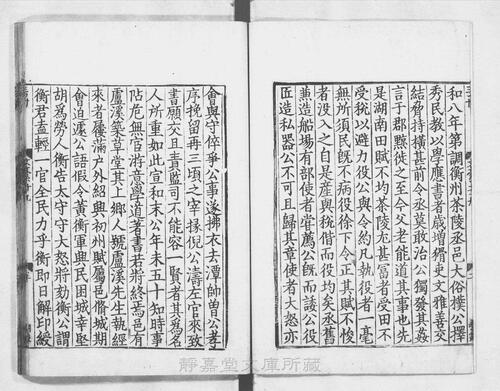 和八年第調衡州茶陵丞邑大俗樸公擇
秀民教以學應書者歲增縉東文雅善交
結脅持橫甚前令丞莫敢治公獨發其姦
言于郡黥徙之至今父老能道其事也先
是湖南田賦不均茶陵尤甚冨者受田不
受稅以避力役公與令約凡執役者一毫
無所須民旣不病役徐下令正其賦不悛
者没入之自是産與稅偕而役均矣丞舊
兼造船場有部使者甞薦公旣而諉公役
匠造私器公不可且歸其章使者大怒亦
會與守倅爭公事遂拂衣去潭帥曽公孝
序挽留再三頃之宰掾倪公濤左官來致
書願交且責監司不能容一賢者其爲名
人所重如此宣和末公年未五十知時事
阽危無宦游意學道著書若將終焉邑有
盧溪築草堂其上鄉人號盧溪先生執經
來者屨滿户外紹興初州賦屬邑脩城期
會迫遽公語假令黄衡軍興民困城幸堅
胡爲勞人衡告太守守大怒將劾衡公謂
衡君盍輕一官全民力乎衡即日解印綬
靜嘉堂文庫所藏